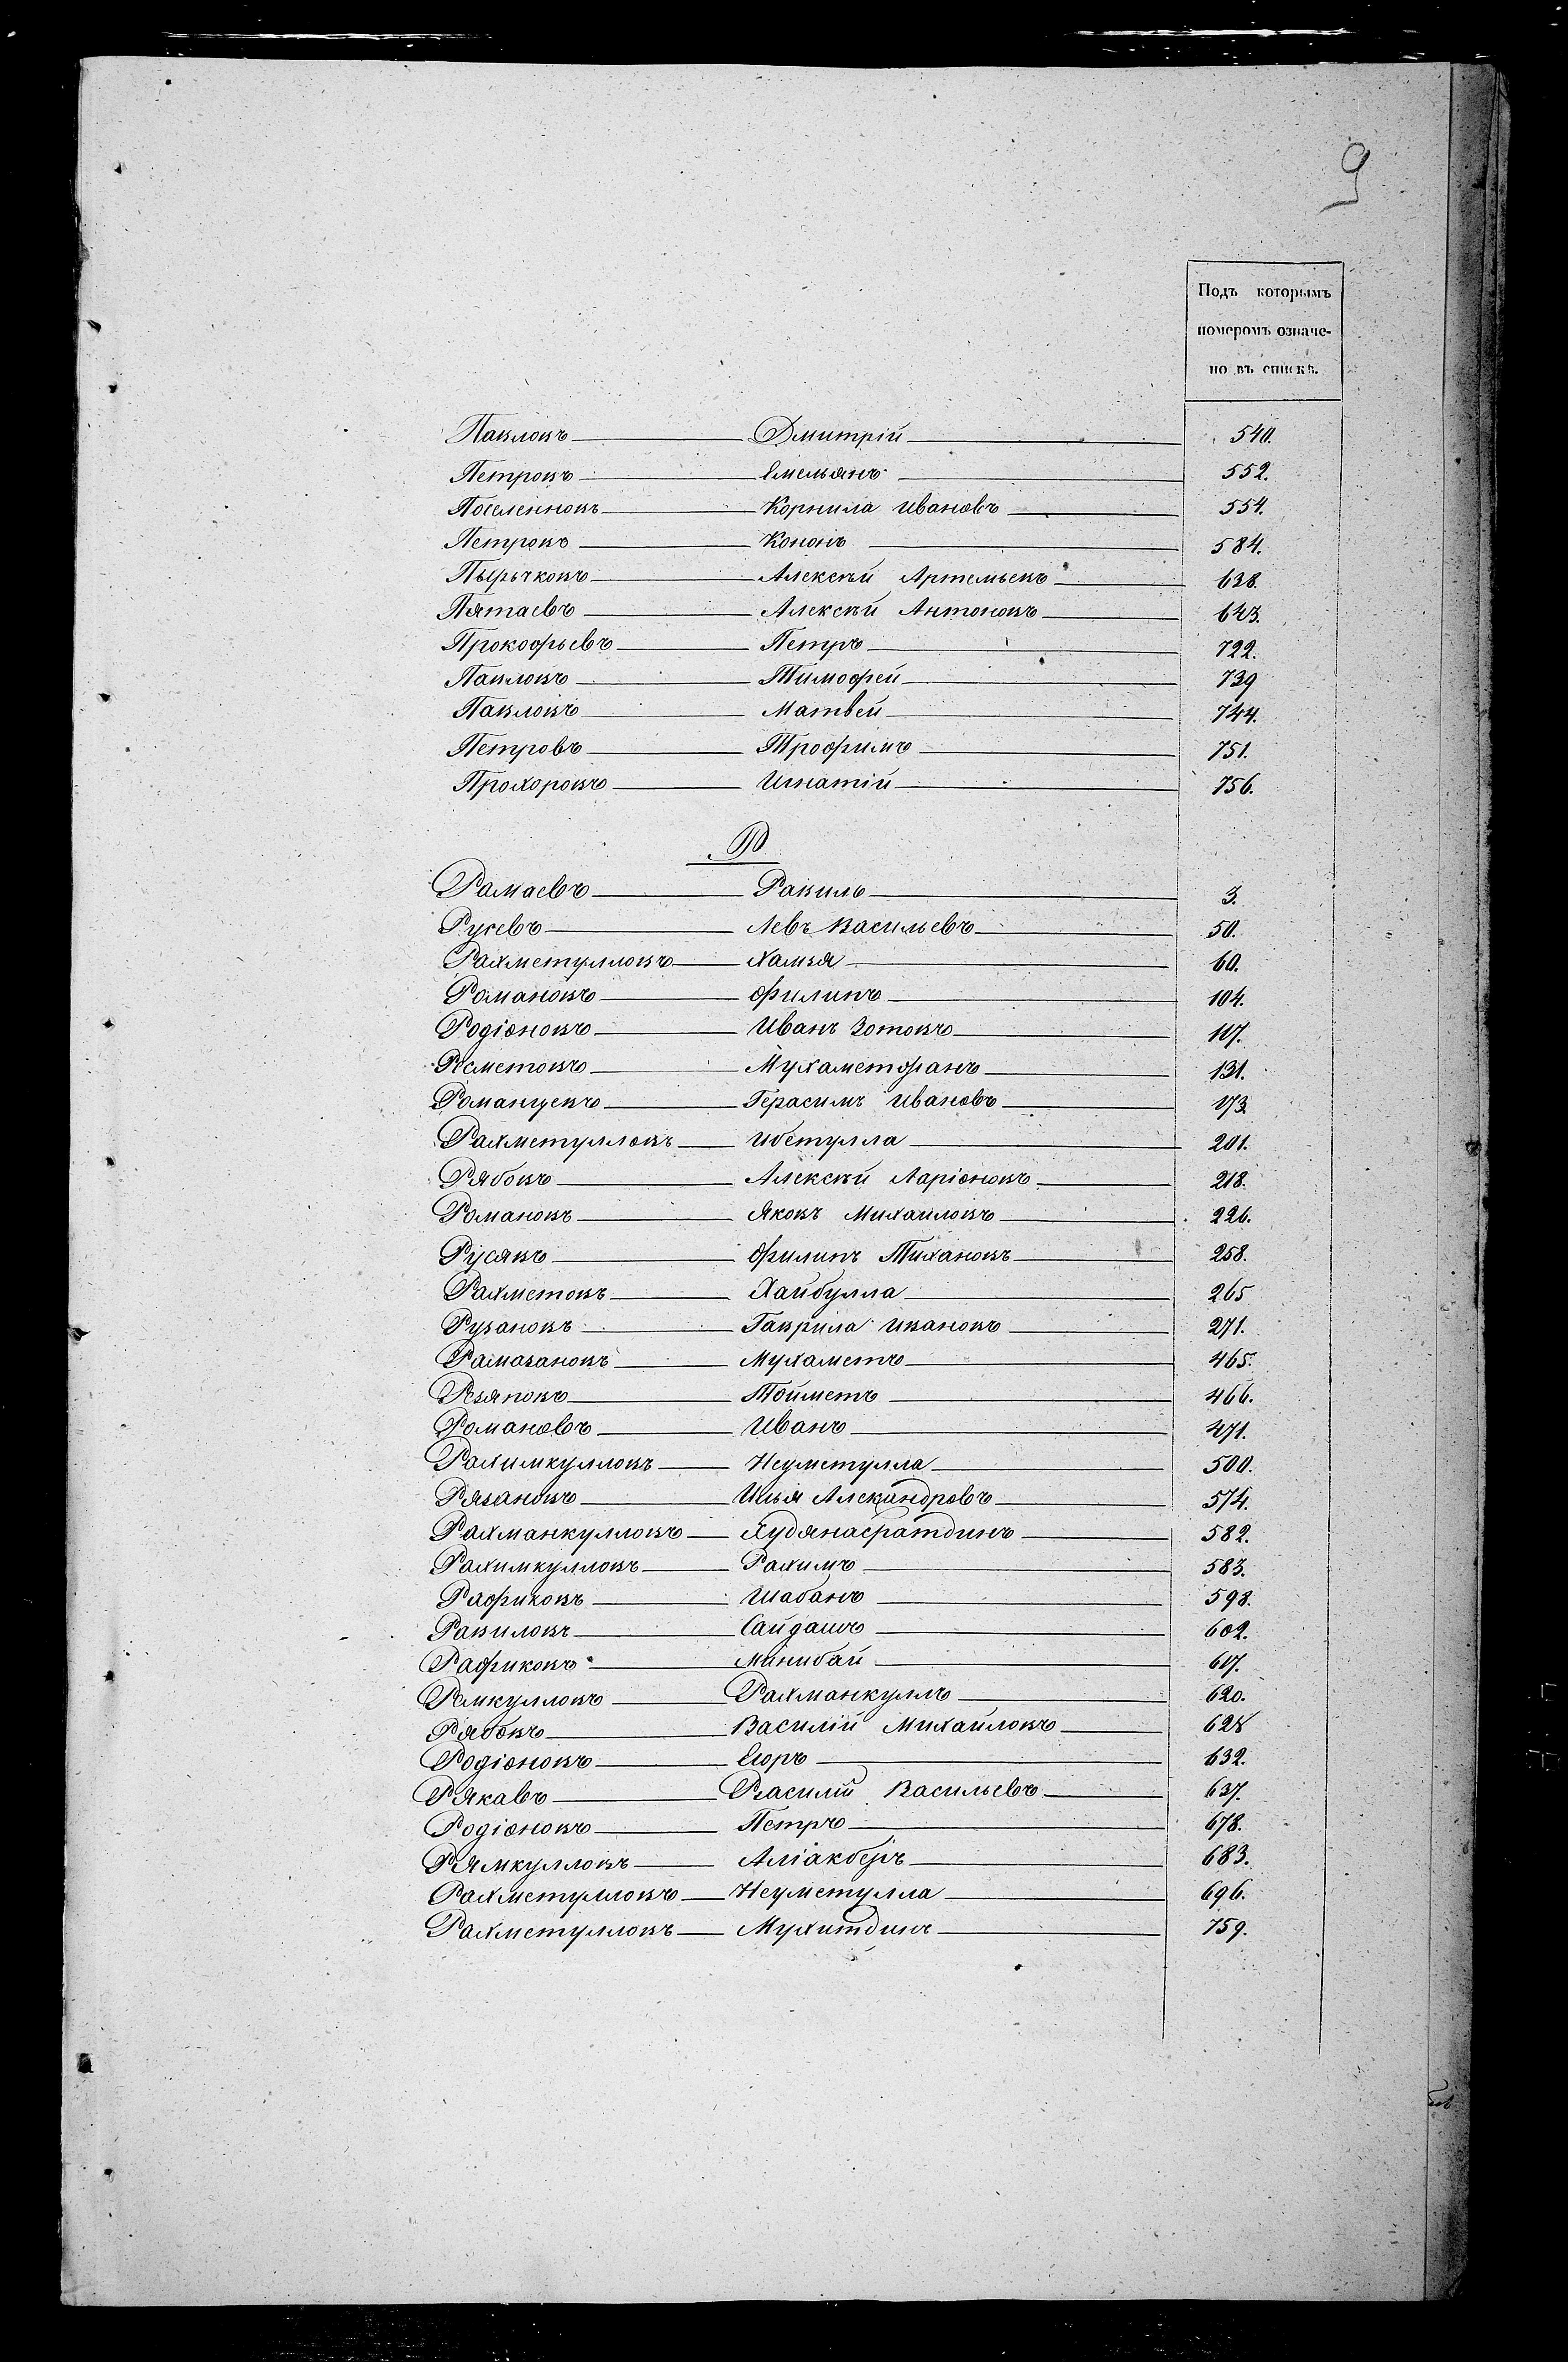 9
Подъ которымъ
номеромъ означе-
но въ спискѣ.
Павловъ Дмитрій 540.
Петровъ Емельянъ 552.
Поселенновъ Корнила Ивановъ 554.
Петровъ Кононъ 584.
Пырычковъ Алексѣй Артемьевъ 638.
Пятаевъ Алексѣй Антоновъ 643.
Прокофьевъ Петръ 722.
Павловъ Тимофей 739
Павловъ Матвей 744.
Петровъ Трофимъ 751.
Прохоровъ Игнатій 756.
Р
Рамаевъ Равиль 3.
Русевъ Левъ Васильевъ 50.
Рахметулловъ Хамзя 60.
Романовъ Филипъ 104.
Родіоновъ Иванъ Зотовъ 117.
Ресметовъ Мухаметфанъ 131.
Романцевъ Герасимъ Ивановъ 173.
Рахметулловъ Ибетулла 201.
Рябовъ Алексѣй Ларіоновъ 218.
Романовъ Яковъ Михаиловъ 226.
Русявъ Филипъ Тихановъ 258.
Рахметовъ Хайбулла 265
Рузановъ Гаврила Ивановъ 271.
Рамазановъ Мухаметъ 465.
Резяповъ Тойметъ 466.
Романовъ Иванъ 471.
Рахимкулловъ Неуметулла 500.
Рязановъ Илья Александровъ 574.
Рахманкулловъ Худянасратдинъ 582.
Рахимкулловъ Рахимъ 583.
Рафиковъ Шабанъ 598.
Равиловъ Сайдашъ 602.
Рафиковъ Минибай 617.
Рямкулловъ Рахманкуллъ 620.
Рябовъ Василій Михайловъ 628
Родіоновъ Егоръ 632.
Рякавъ Василій Васильевъ 637.
Родіоновъ Петръ 678.
Рямкулловъ Аліакберъ 683.
Рахметулловъ Неуметулла 696.
Рахметулловъ Мухитдинъ 759.